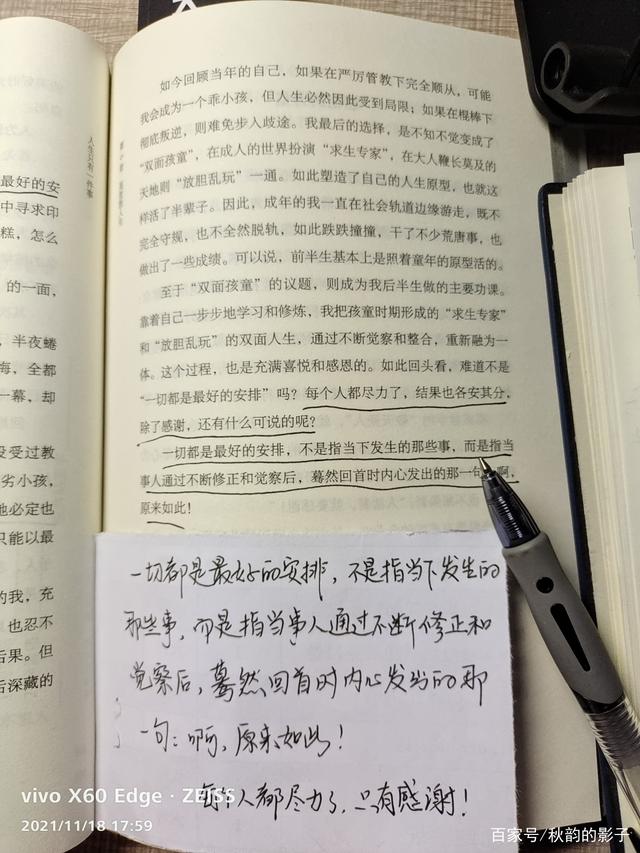 最好的安
中寻求印
糕，怎么
的一面，
半夜蜷
海，全都
一幕，却
没受过教
劣小孩，
她必定也
只能以最
的我，充
也忍不
后果。但
后深藏的
人生只有一件事
如今回顾当年的自己，如果在严厉管教下完全顺从，可能
我会成为一个乖小孩，但人生必然因此受到局限；如果在棍棒下
彻底叛逆，则难免步入歧途。我最后的选择，是不知不觉变成了
“双面孩童”，在成人的世界扮演“求生专家”，在大人鞭长莫及的
天地则“放胆乱玩”一通。如此塑造了自己的人生原型，也就这
样活了半辈子。因此，成年的我一直在社会轨道边缘游走，既不
完全守规，也不全然脱轨，如此跌跌撞撞，干了不少荒唐事，也
做出了一些成绩。可以说，前半生基本上是照着童年的原型活的。
至于“双面孩童”的议题，则成为我后半生做的主要功课。
靠着自己一步步地学习和修炼，我把孩童时期形成的“求生专家”
和“放胆乱玩”的双面人生，通过不断觉察和整合，重新融为一
体。这个过程，也是充满喜悦和感恩的。如此回头看，难道不是
“一切都是最好的安排”吗？每个人都尽力了，结果也各安其分，
除了感谢，还有什么可说的呢？
一切都是最好的安排，不是指当下发生的那些事，而是指当
事人通过不断修正和觉察后，蓦然回首时内心发出的那一句：啊，
原来如此！
一切都是最好的安排，不是指当下发生的
那些事，而是指当事人通过不断修正和
觉察后，蓦然回首时内心发出的那
一句：啊，原来如此！
每个人都尽力了，只有感谢！
vivo X60 Edge · ZEISS
2021/11/18 17:59
百家号/秋韵的影子